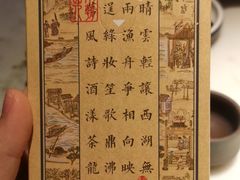 晴雲輕讓西湖無
雨漁舟爭相向映
綠妝笙歌鼎沸
風詩酒漾茶龍